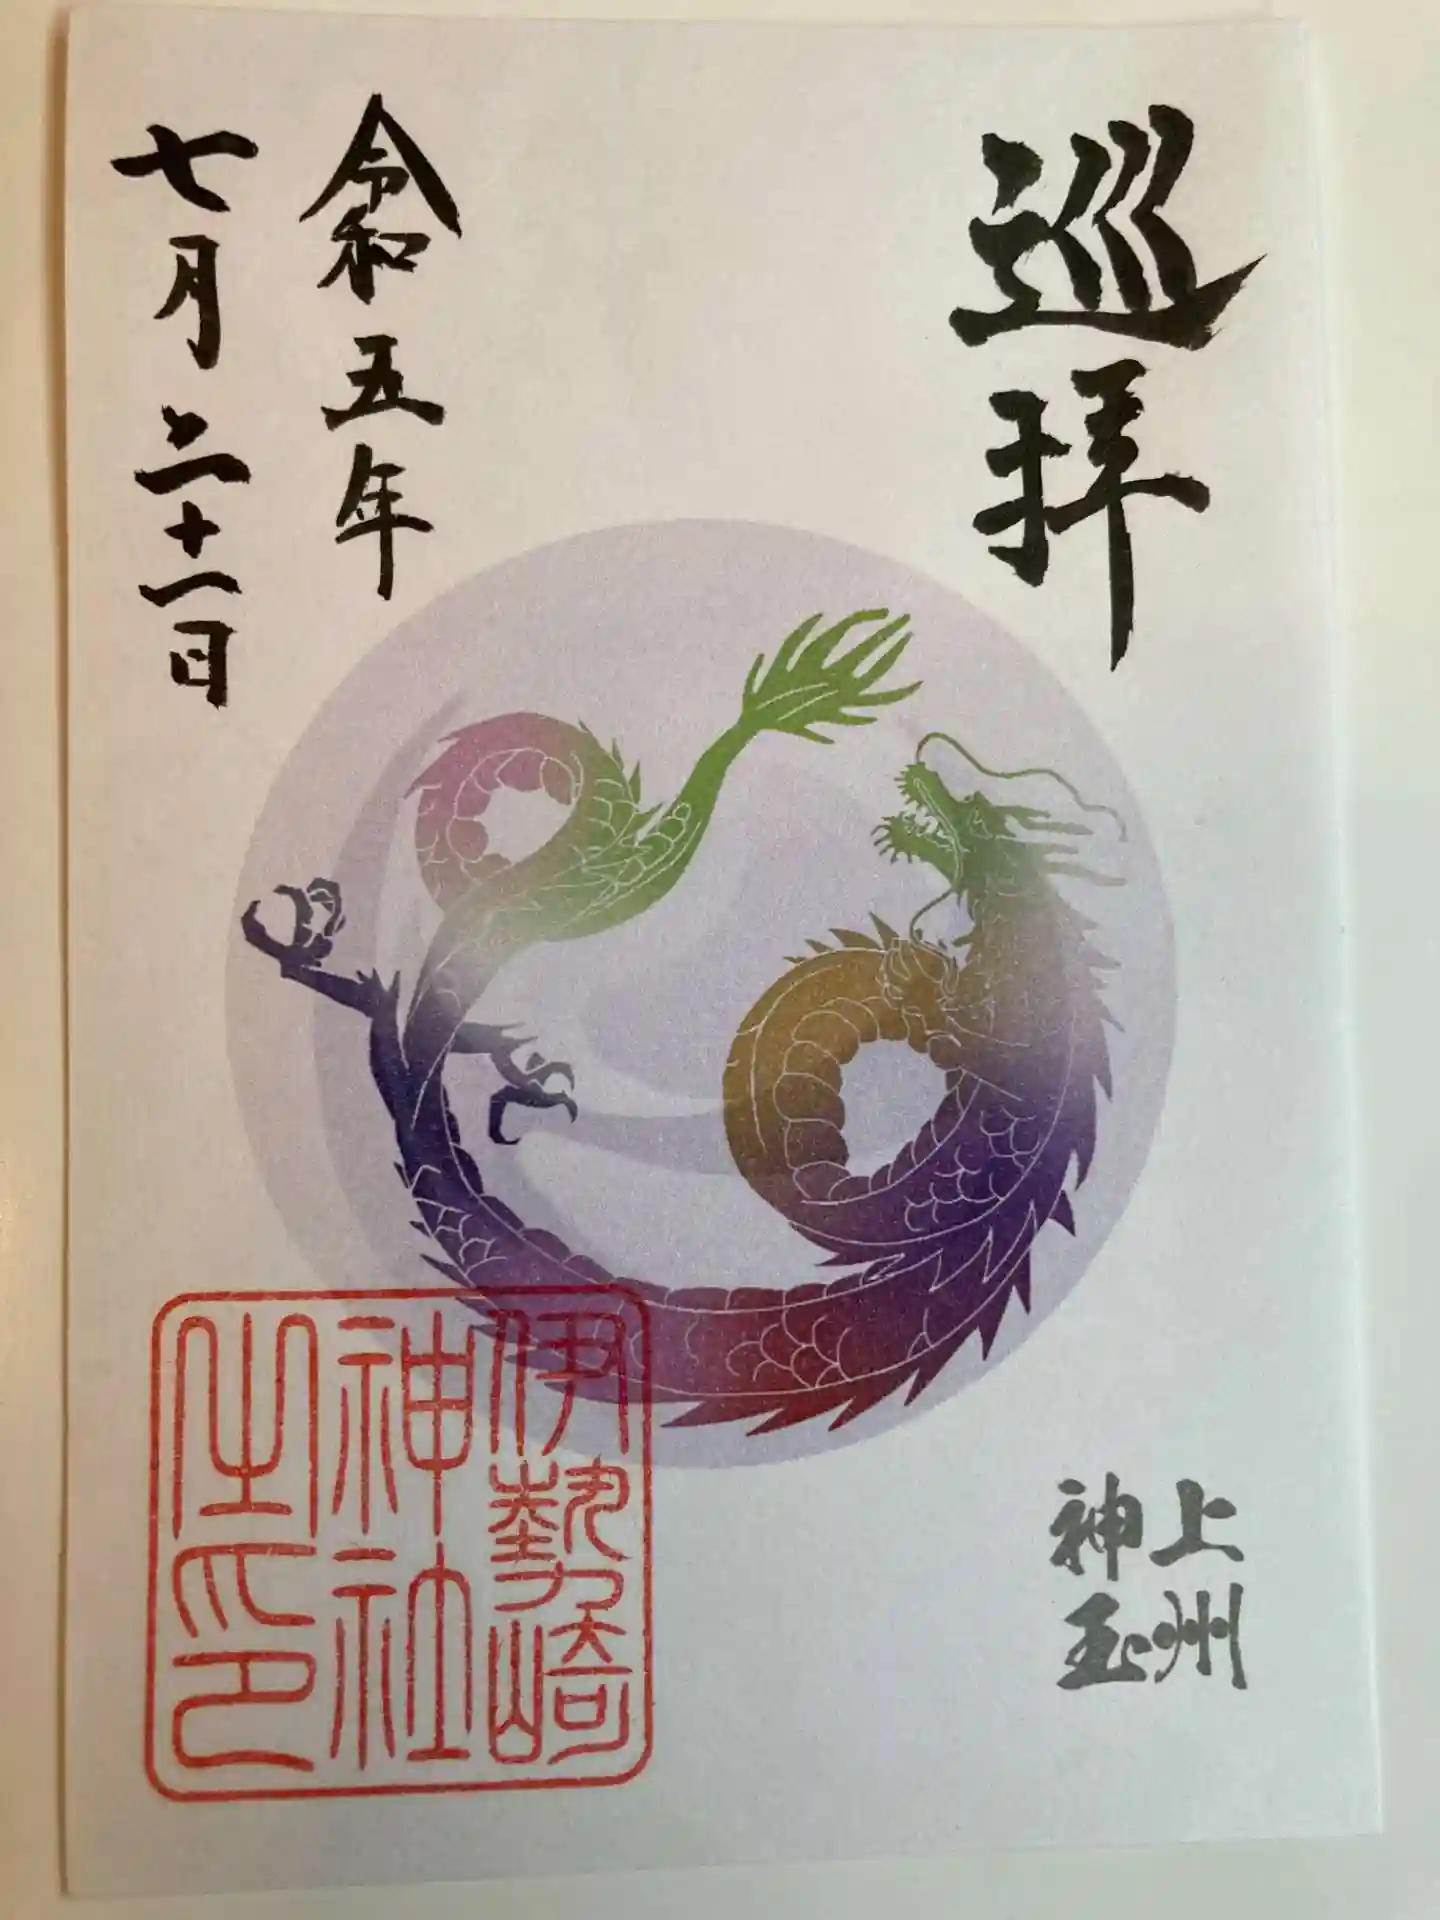 巡拝
上州
神玉
令和五年
七月二十一日
伊勢崎
神社
之印